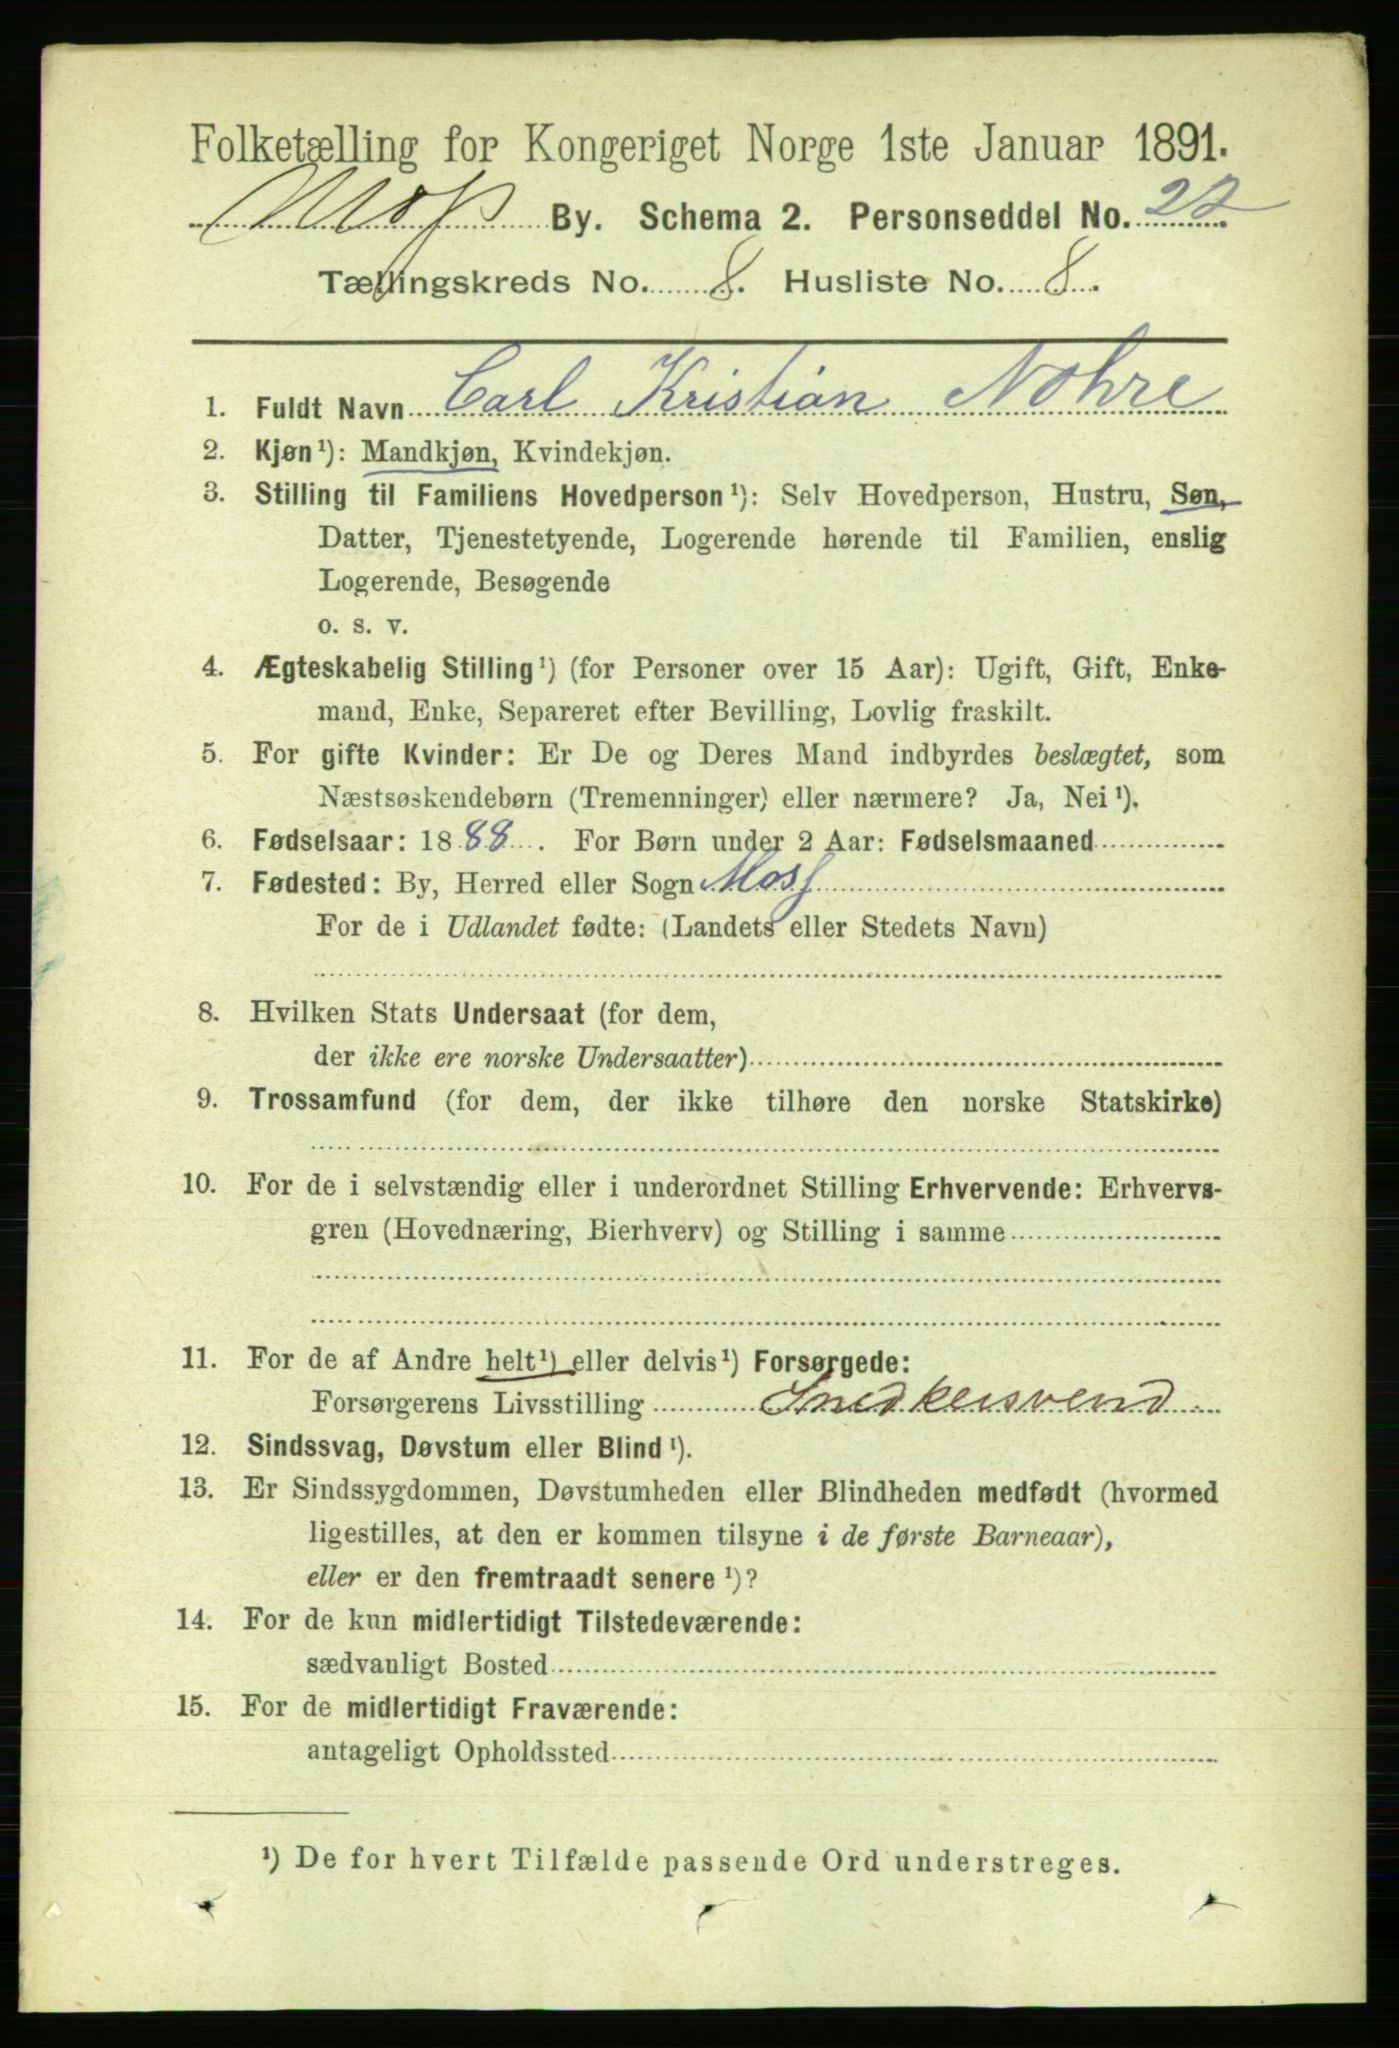 Folketælling for Kongeriget Norge 1ste Januar 1891.
Moss By. Schema 2. Personseddel No. 22
Tællingskreds No. 8. Husliste No. 8.
1. Fuldt Navn Carl Kristian Nohre
2. Kjøn ¹): Mandkjøn, Kvindekjøn.
3. Stilling til Familiens Hovedperson ¹): Selv Hovedperson, Hustru, Søn,
Datter, Tjenestetyende, Logerende hørende til Familien, enslig
Logerende, Besøgende
o. s. v.
4. Ægteskabelig Stilling ¹) (for Personer over 15 Aar): Ugift, Gift, Enke-
mand, Enke, Separeret efter Bevilling, Lovlig fraskilt.
5. For gifte Kvinder: Er De og Deres Mand indbyrdes beslægtet, som
Næstsøskendebørn (Tremenninger) eller nærmere? Ja, Nei ¹).
6. Fødselsaar: 1888. For Børn under 2 Aar: Fødselsmaaned
7. Fødested: By, Herred eller Sogn Moss
For de i Udlandet fødte: (Landets eller Stedets Navn)
8. Hvilken Stats Undersaat (for dem,
der ikke ere norske Undersaatter)
9. Trossamfund (for dem, der ikke tilhøre den norske Statskirke)
10. For de i selvstændig eller i underordnet Stilling Erhvervende: Erhvervs-
gren (Hovednæring, Bierhverv) og Stilling i samme
11. For de af Andre helt ¹) eller delvis ¹) Forsørgede:
Forsørgerens Livsstilling Snedkersvend
12. Sindssvag, Døvstum eller Blind ¹).
13. Er Sindssygdommen, Døvstumheden eller Blindheden medfødt (hvormed
ligestilles, at den er kommen tilsyne i de første Barneaar),
eller er den fremtraadt senere ¹)?
14. For de kun midlertidigt Tilstedeværende:
sædvanligt Bosted
15. For de midlertidigt Fraværende:
antageligt Opholdssted
¹) De for hvert Tilfælde passende Ord understreges.